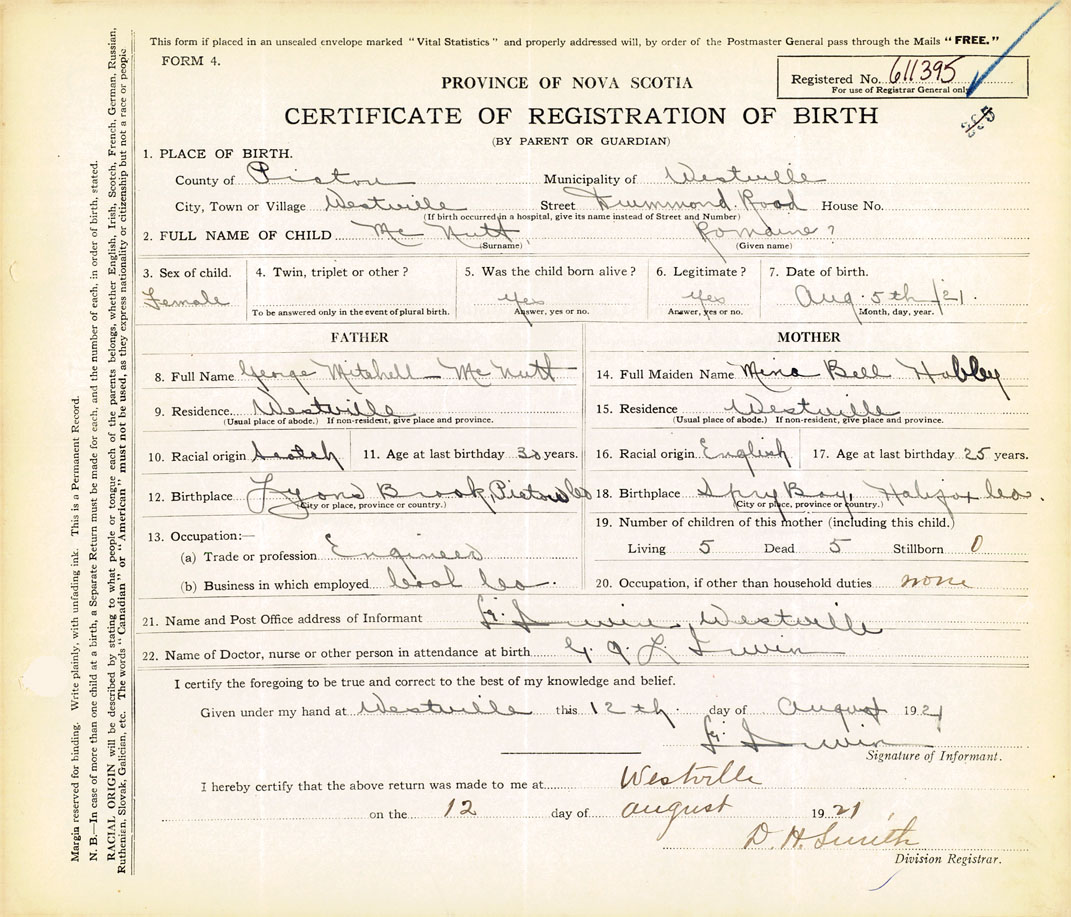 This form if placed in an unsealed envelope marked "Vital Statistics" and properly addressed will, by order of the Postmaster General pass through the Mails "FREE."
FORM 4.
Registered No. 611395
For use of Registrar General only
335
PROVINCE OF NOVA SCOTIA
CERTIFICATE OF REGISTRATION OF BIRTH
(BY PARENT OR GUARDIAN)
1. PLACE OF BIRTH.
County of Pictou Municipality of Westville
City, Town or Village Westville Street Drummond Road House No.
(If birth occurred in a hospital, give its name instead of Street and Number)
2. FULL NAME OF CHILD Mc Nutt Romaine ?
(Surname) (Given name)
3. Sex of child. 4. Twin, triplet or other ? 5. Was the child born alive ? 6. Legitimate ? 7. Date of birth.
Female yes yes Aug. 5th /21.
To be answered only in the event of plural birth. Answer, yes or no. Answer, yes or no. Month, day, year.
FATHER MOTHER
8. Full Name George Mitchell Mc Nutt 14. Full Maiden Name Mina Bell Hobbley
9. Residence Westville 15. Residence Westville
(Usual place of abode.) If non-resident, give place and province. (Usual place of abode.) If non-resident, give place and province.
10. Racial origin Scotch 11. Age at last birthday years. 16. Racial origin English 17. Age at last birthday 25 years.
12. Birthplace Lyons Brook, Pictou Co 18. Birthplace Spry Bay, Halifax Co.
(City or place, province or country.) (City or place, province or country.)
13. Occupation:— 19. Number of children of this mother (including this child.)
(a) Trade or profession Engineer Living 5 Dead 5 Stillborn 0
(b) Business in which employed Coal Co. 20. Occupation, if other than household duties none
21. Name and Post Office address of Informant Irwin, Westville
22. Name of Doctor, nurse or other person in attendance at birth Irwin
I certify the foregoing to be true and correct to the best of my knowledge and belief.
Given under my hand at Westville this 12th. day of August 1921
Irwin
Signature of Informant.
I hereby certify that the above return was made to me at Westville
on the 12 day of august 1921
D. H. Smith
Division Registrar.
Margin reserved for binding. Write plainly, with unfading ink. This is a Permanent Record.
N. B.—In case of more than one child at a birth, a Separate Return must be made for each, and the number of each, in order of birth, stated.
RACIAL ORIGIN will be described by stating to what people or tongue each of the parents belongs, whether English, Irish, Scotch, French, German, Russian,
Ruthenian, Slovak, Galician, etc. The words "Canadian" or "American" must not be used, as they express nationality or citizenship but not a race or people